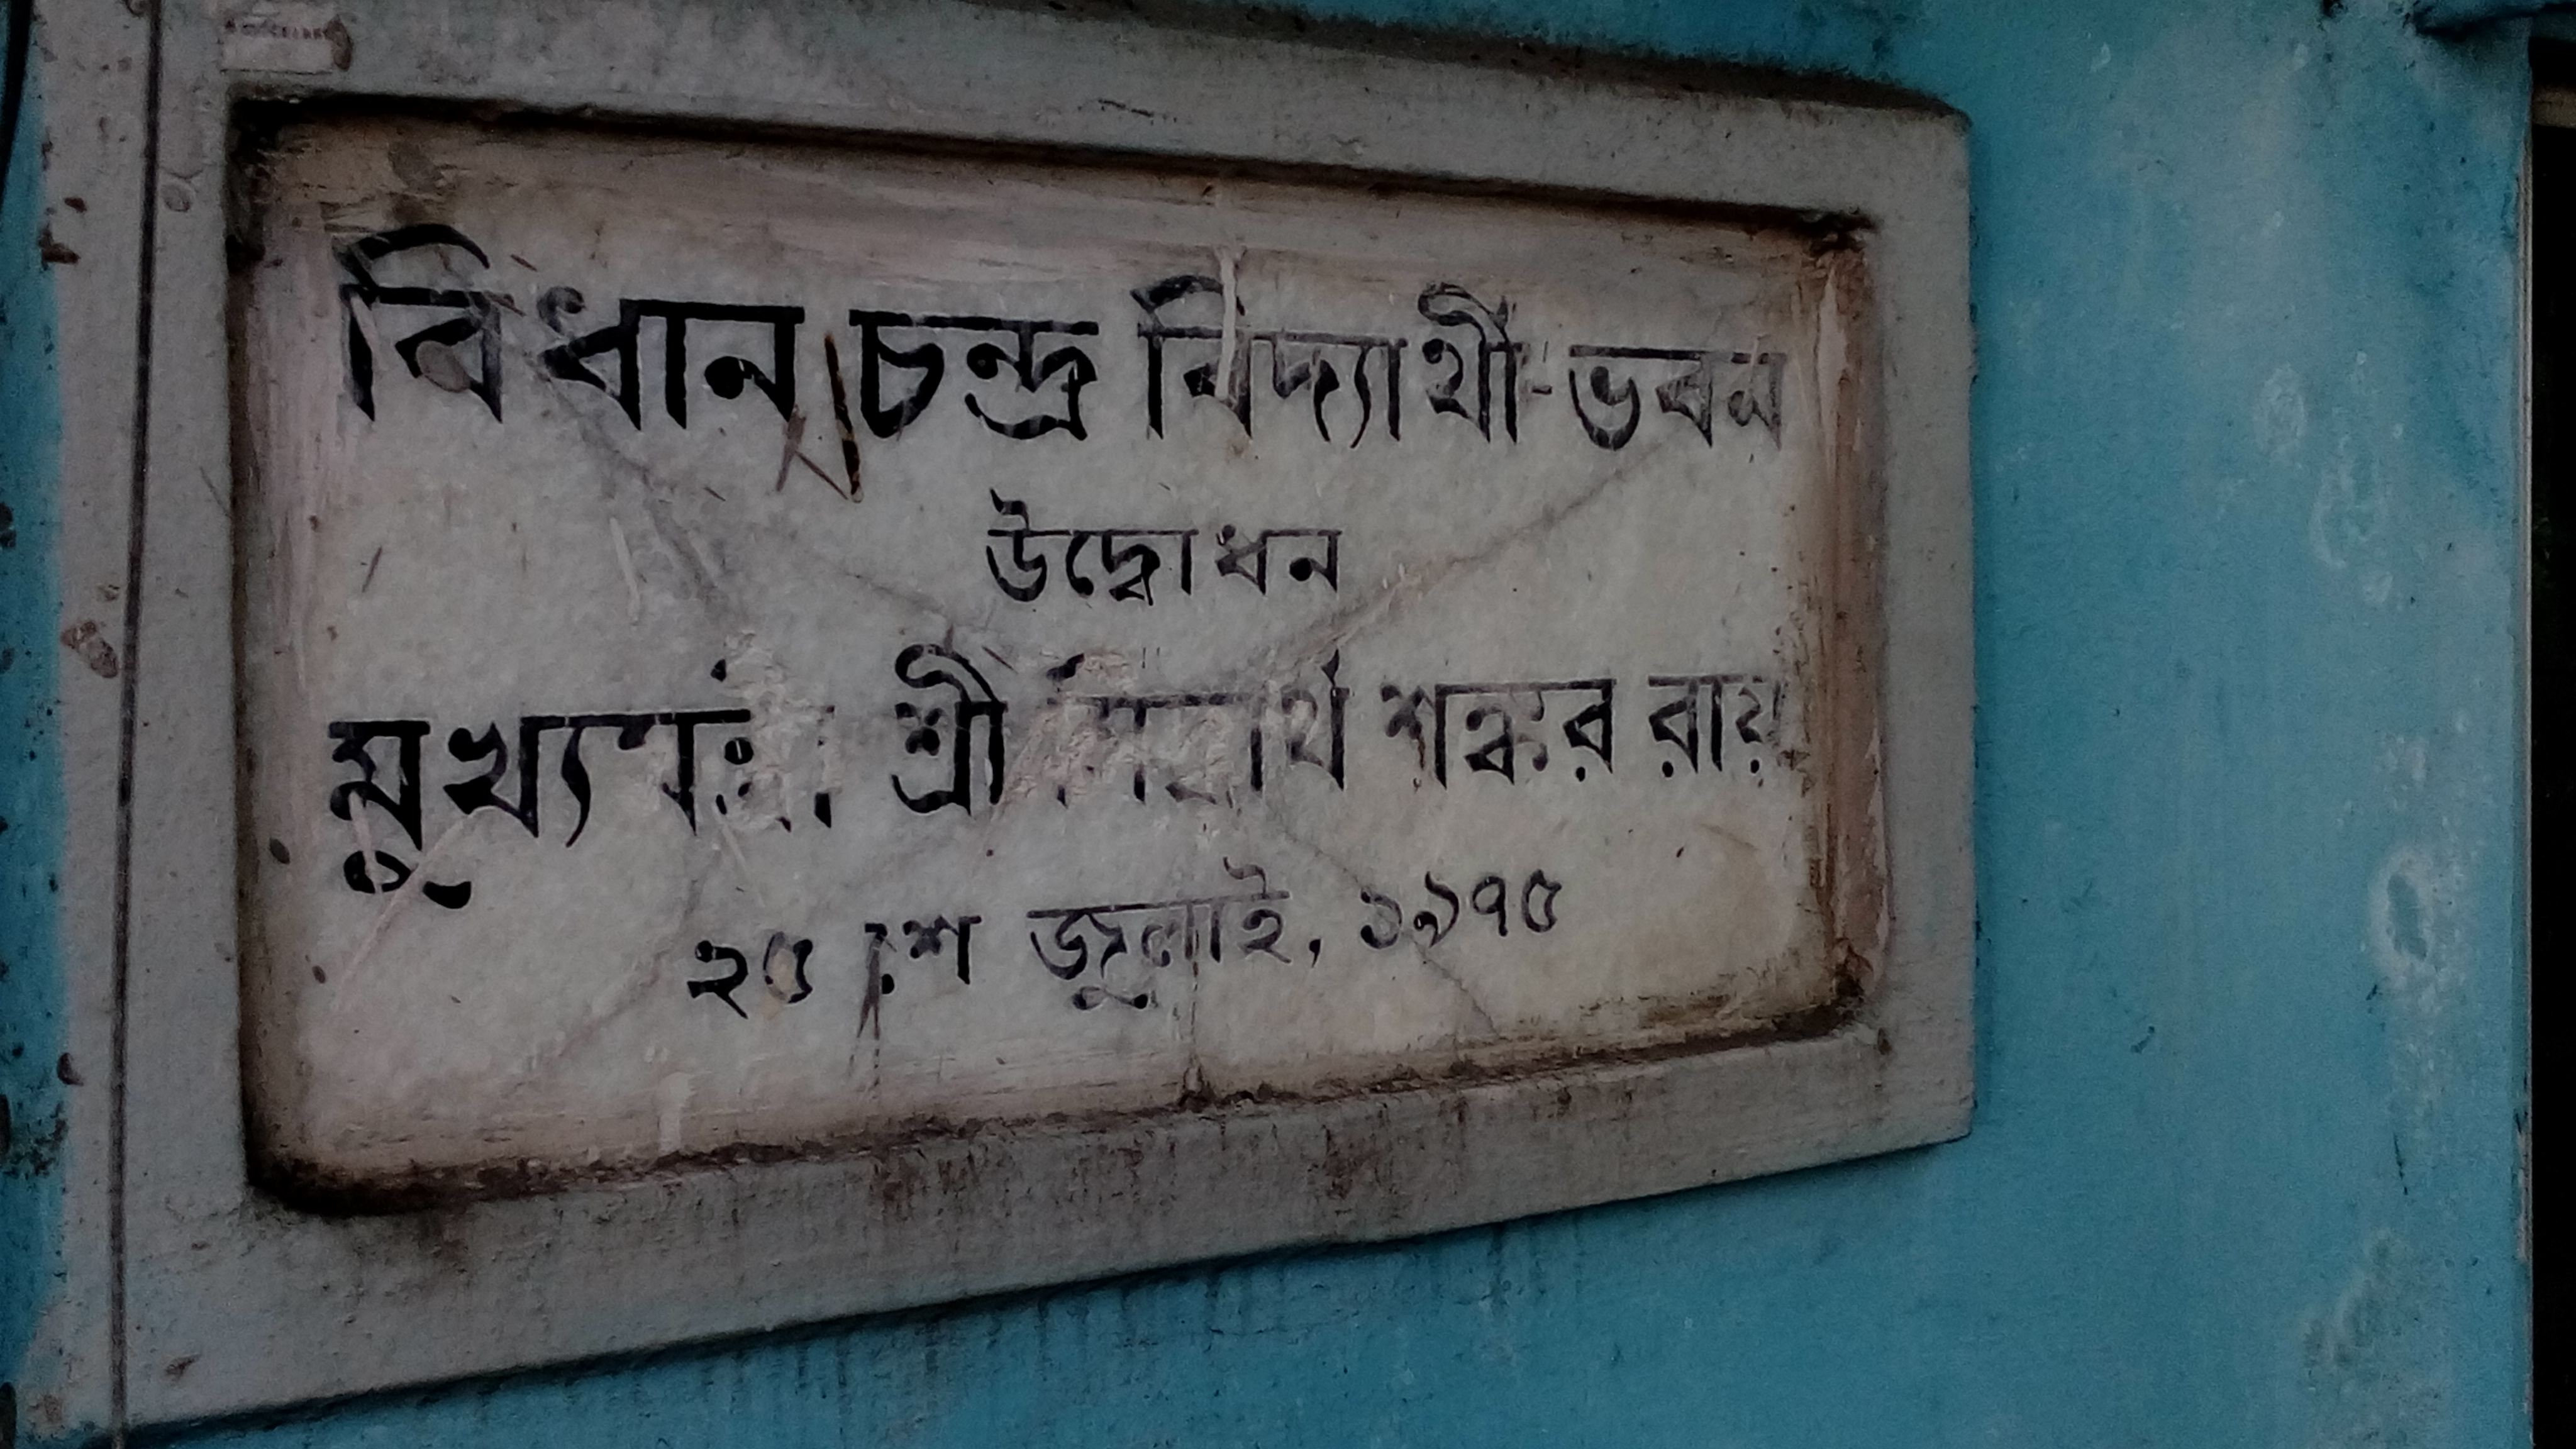 বিধান চন্দ্র বিদ্যার্থী-ভবন
উদ্বোধন
মুখ্যমন্ত্রী শ্রী সিদ্ধার্থ শঙ্কর রায়
২৫ শে জুলাই, ১৯৭৫